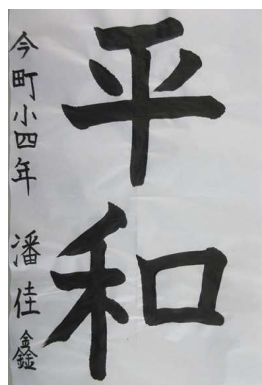 平和
今町小四年 潘佳鑫